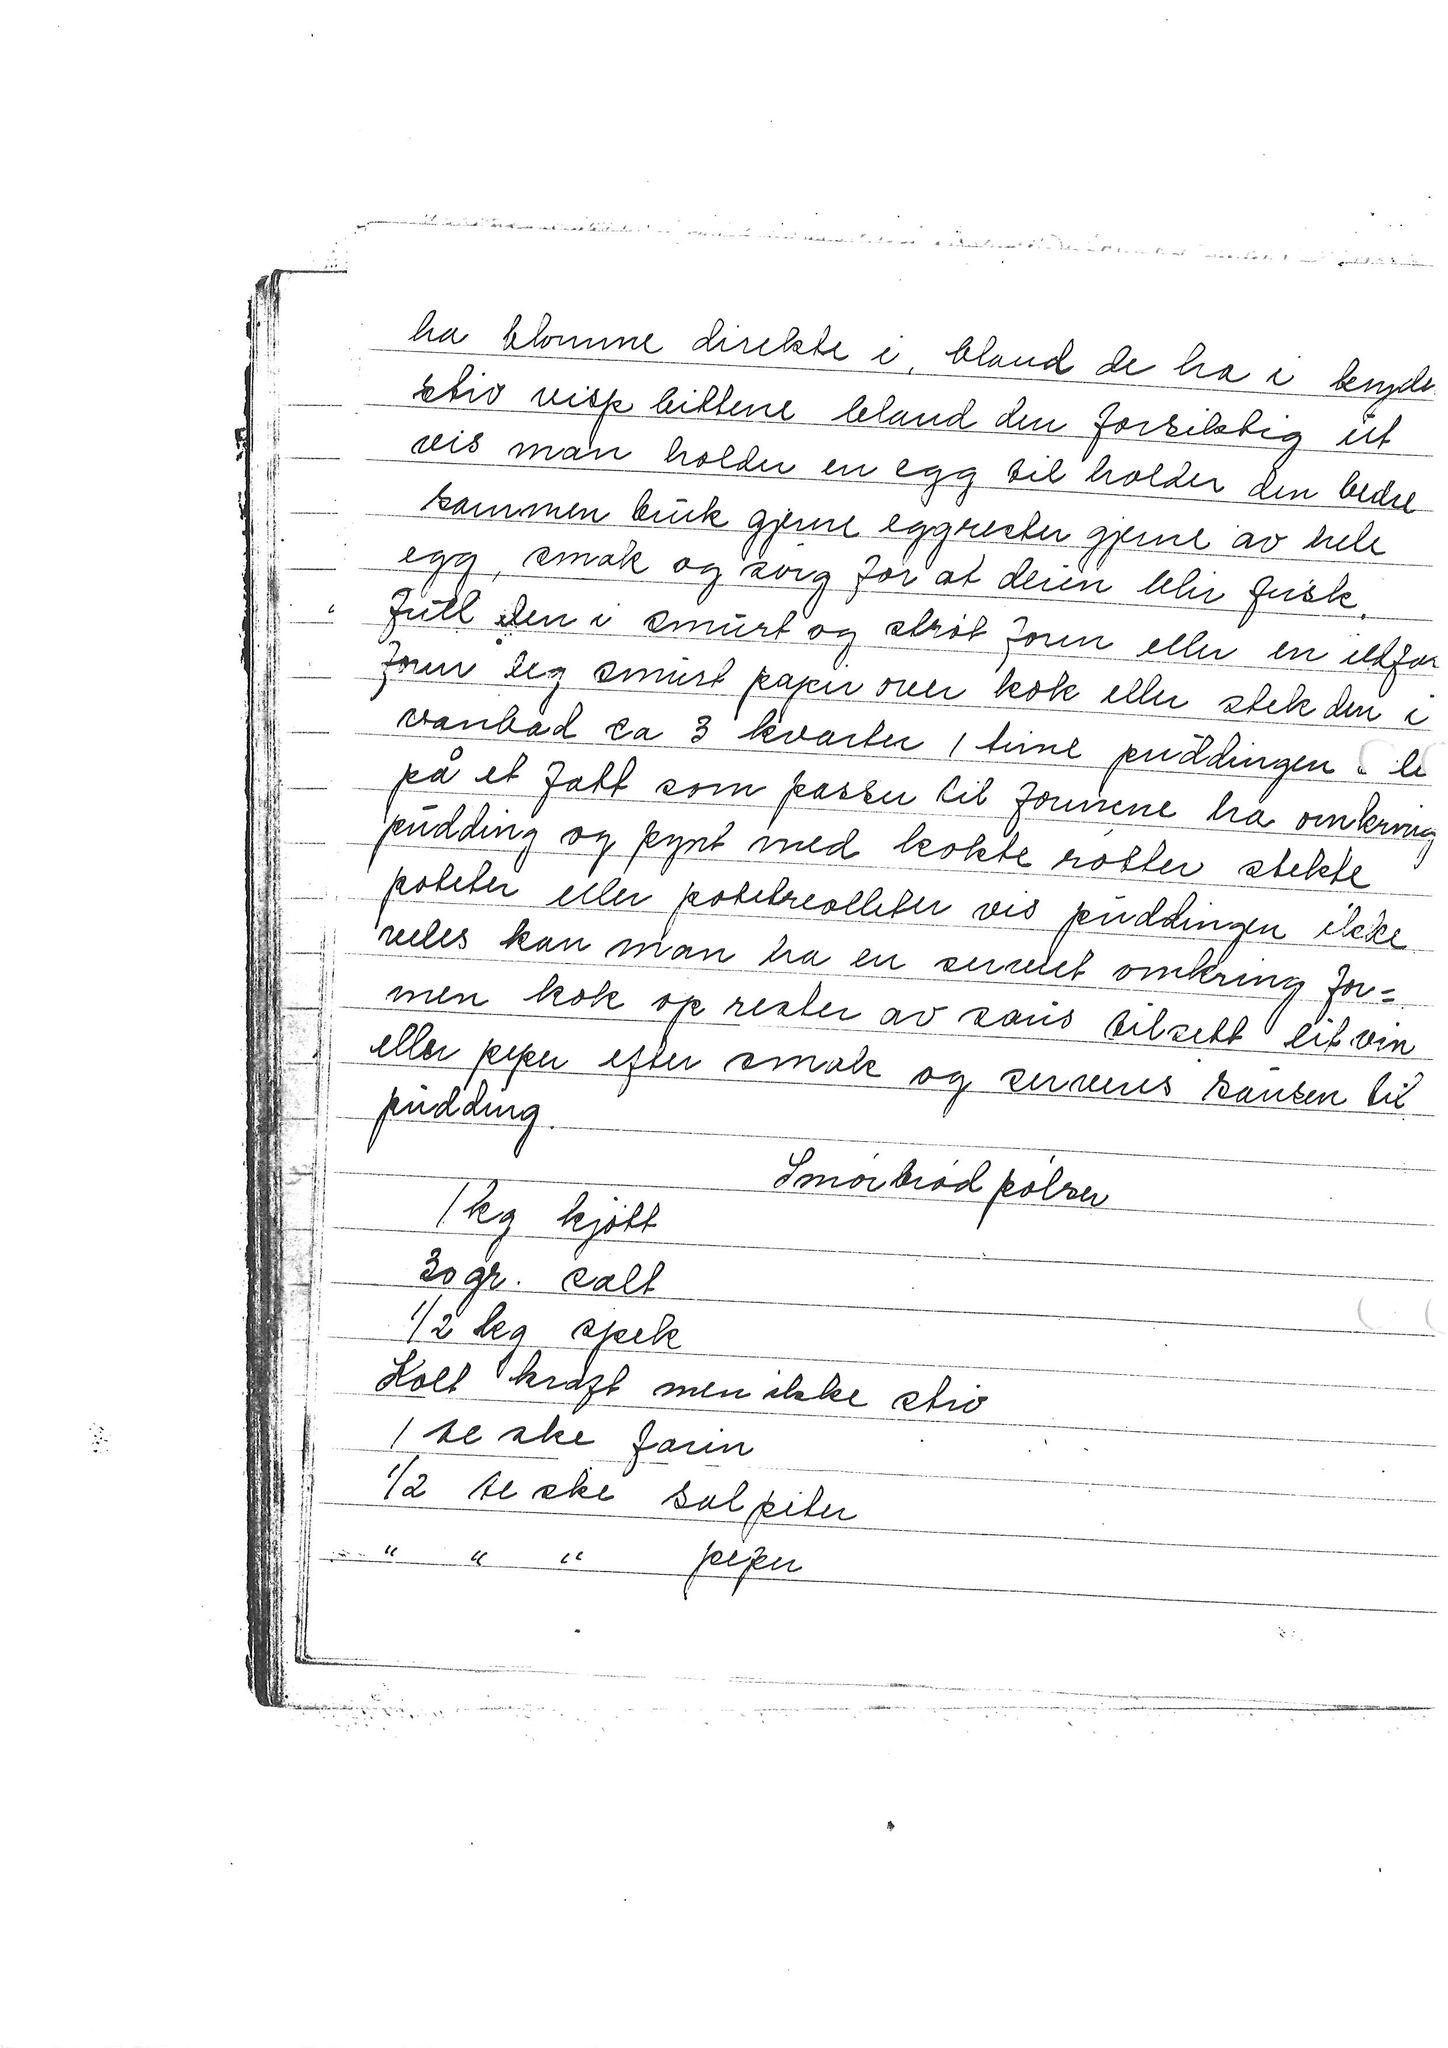 ha blomme direkte i, bland de ha i
stiv visp bittene bland den forsiktig ut
vis man holder en egg til holder den bedre
sammen bruk gjerne eggrester gjerne av hele
egg, smak og sørg for at deien blir frisk.
Full den i smurt og strøt form eller en ildfor
form leg smurt papir over kok eller stek den i
vanbad ca 3 kvarter 1 time puddingen
på et fatt som passer til formene ha omkring
pudding og pynt med kokte røtter stekte
poteter eller vis puddingen ikke
veles kan man ha en serviet omkring for=
men kok op rester av saus tilsett lit vin
eller peper efter smak og serveres sausen til
pudding.
Smørbrød pølser
1 kg kjøtt
30 gr. salt
1/2 kg spek
Kolt kraft men ikke stiv
1 te ske farin
1/2 te ske salpeter
" " " peper